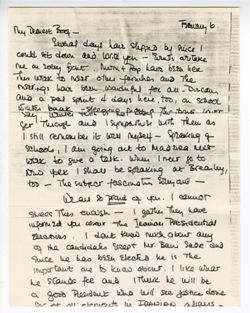 February 6
My Dearest Boy,
Several days have slipped by since I
could sit down and write you -
me on every front. Mum & Pop have been here
This week to meet other families and the
meetings have been wonderful for all - Duncan
and a pal spent 4 days here, too, on school
get through and I sympathize with them as
I still remember it well myself - Speaking of
schools, I am going out to Madeira next
week to give a talk. When I next go to
New York I shall be speaking at Brearley,
too - The subject fascinates everyone -
We are so proud of you. I cannot
stress this enough - I gather they have
informed you about the Iranian Presidential
elections - I don't know much about any
of the candidates except for Bani Sadr and
since he has been elected he is the
important one to know about. I like what
he stands for and I think he will be
a good President who will see justice done